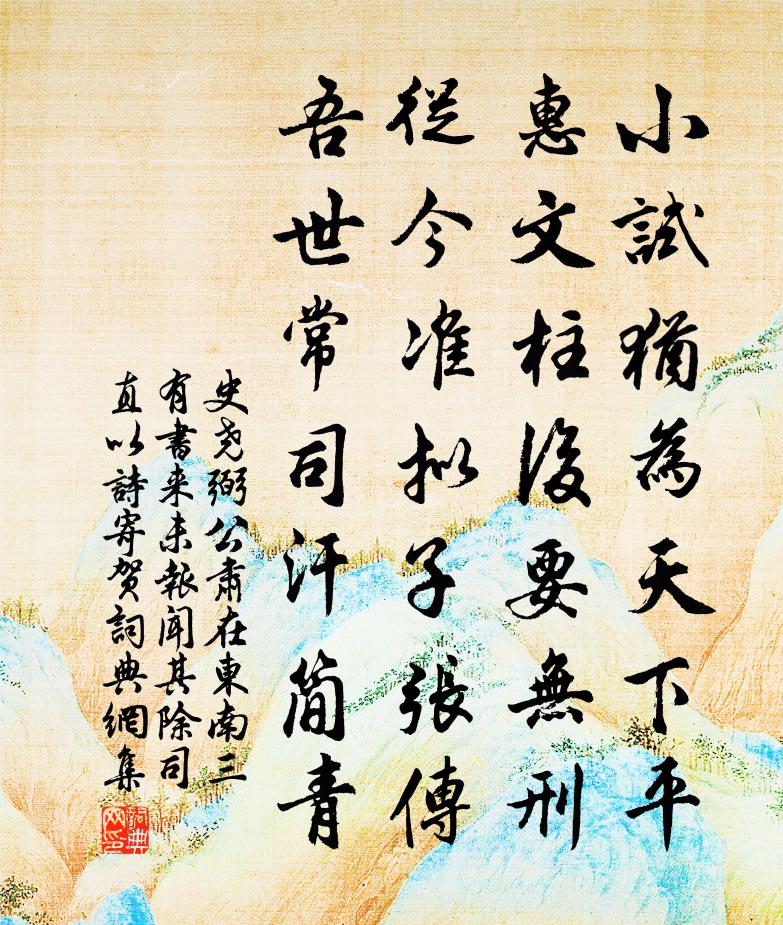 小試猶為天下平
惠文柱後要無刑
從今准擬子張傳
吾世常司汗簡青
史堯弼公肅在東南三
有書来未報聞其除司
直以詩寄賀詞典網集